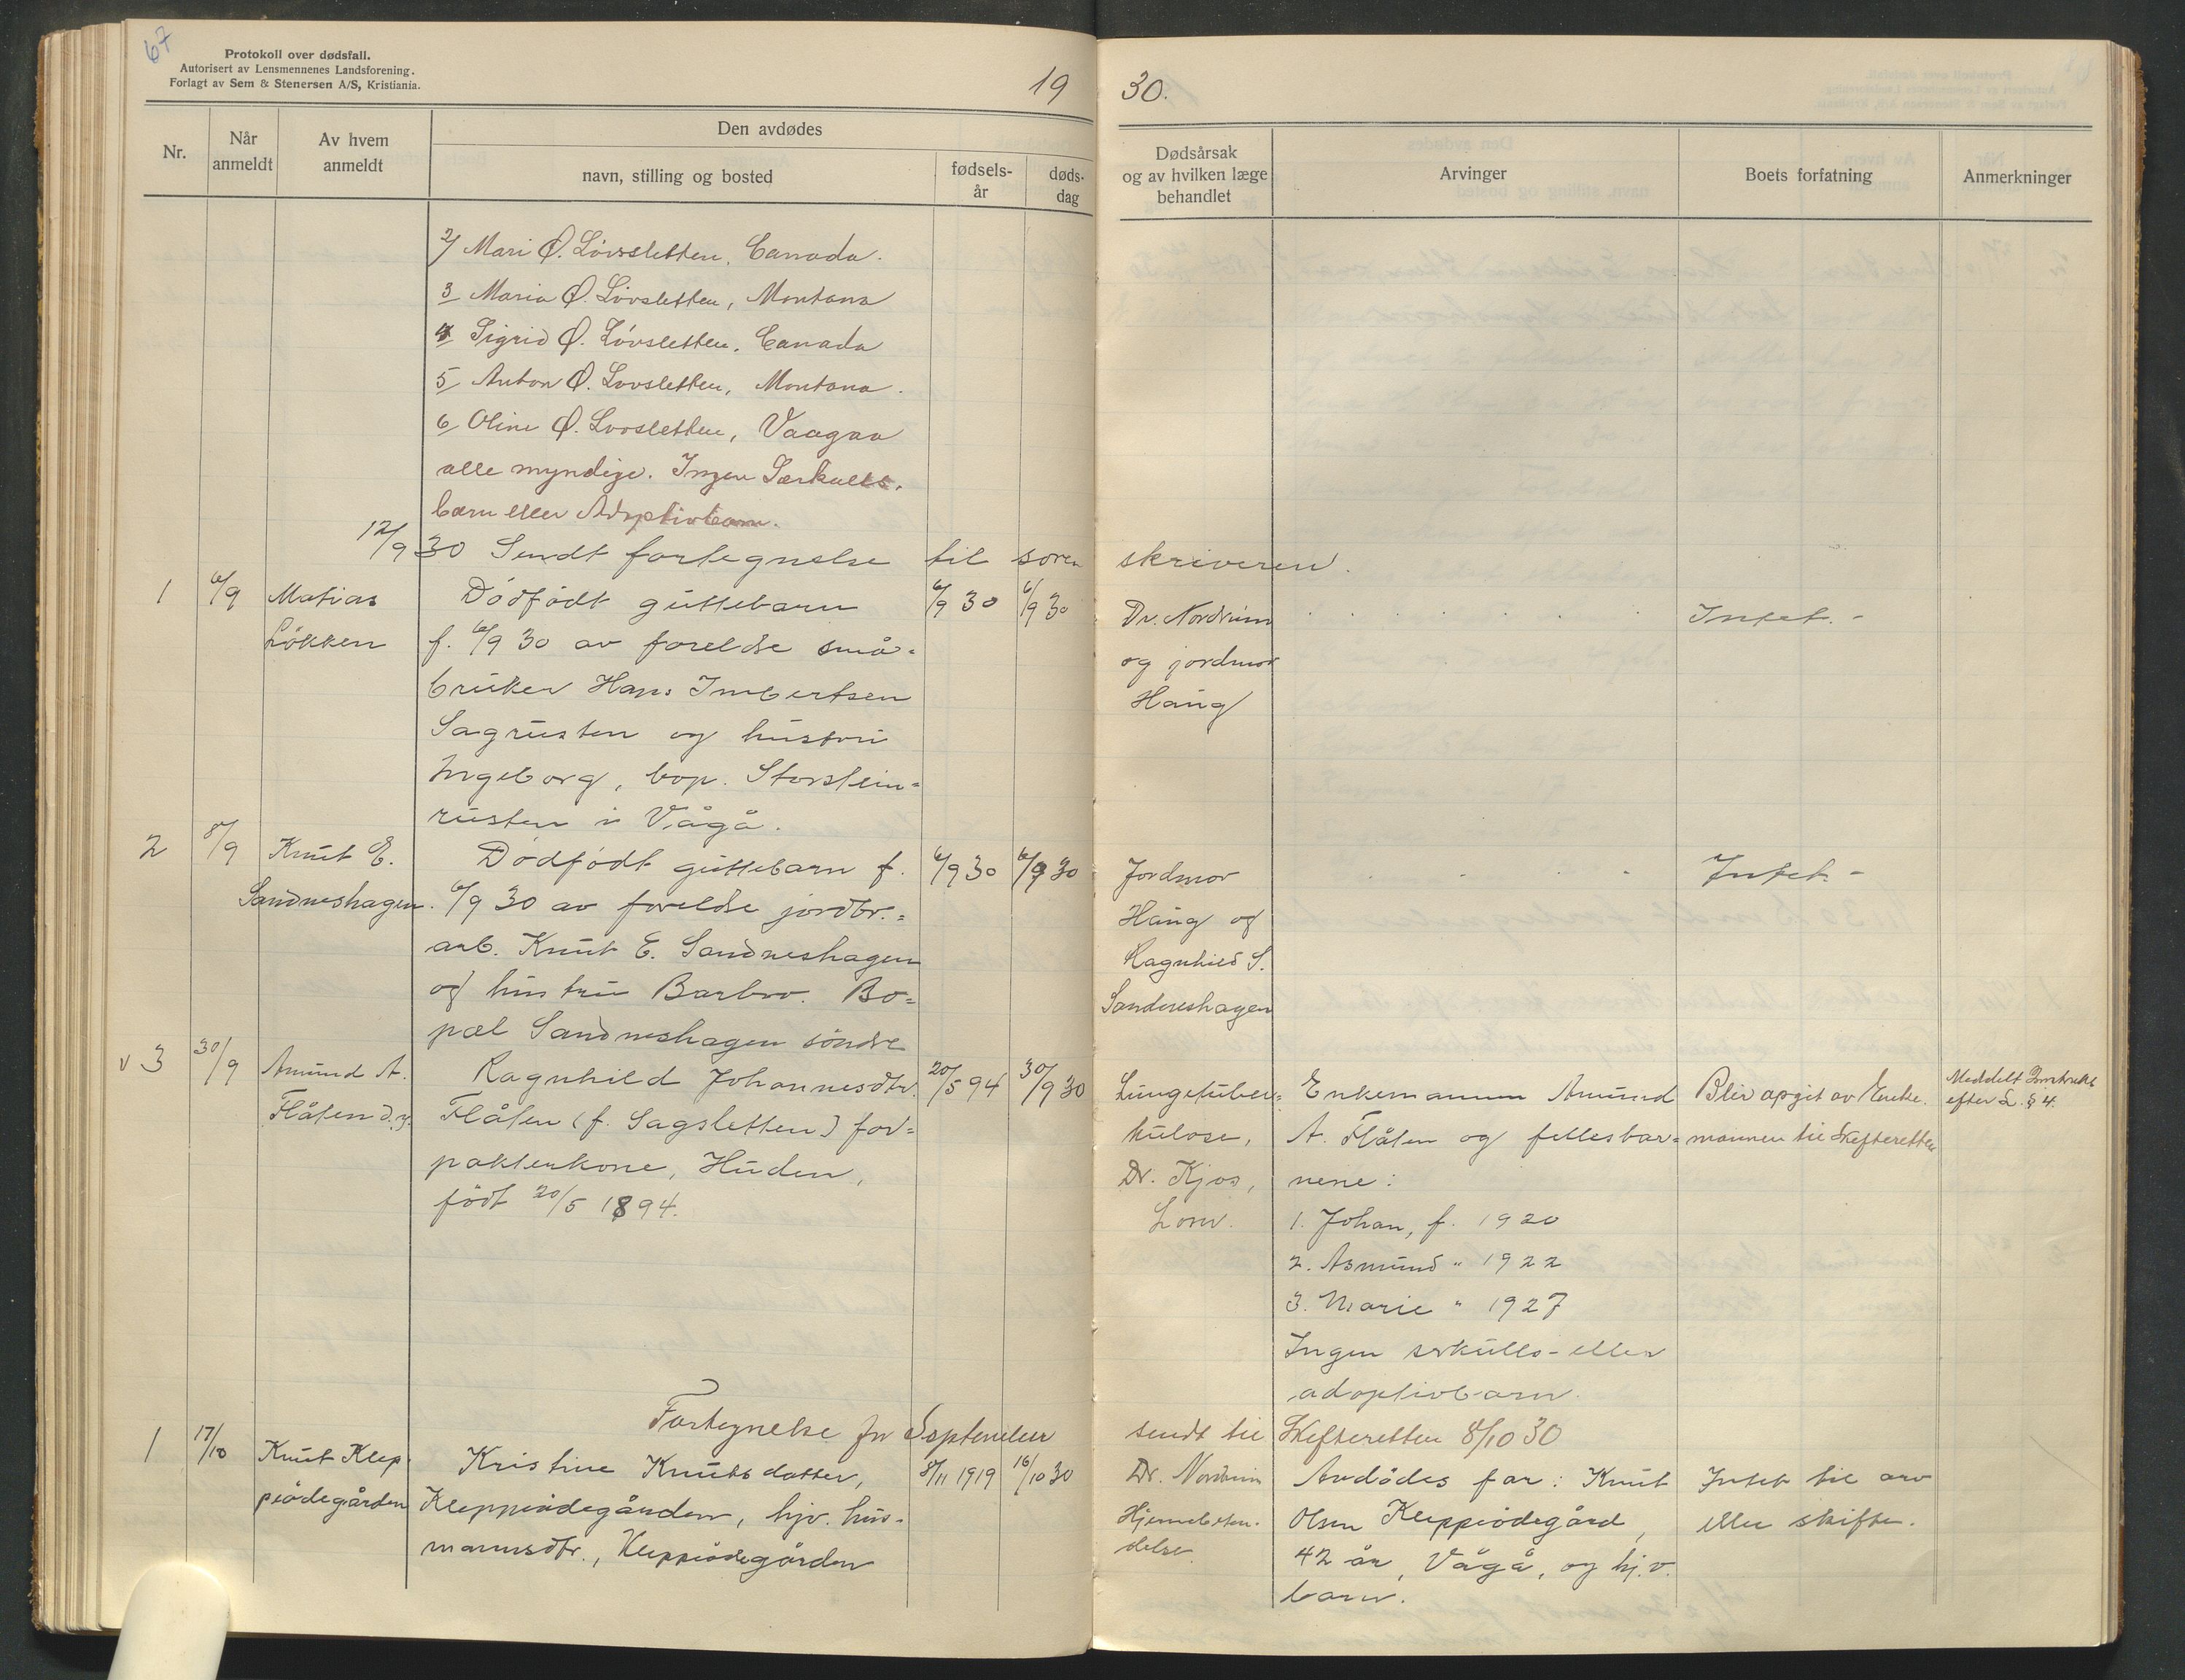 67
Protokoll over dødsfall.
Autorisert av Lensmennenes Landsforening.
Forlagt av Sem & Stenersen A/S, Kristiania.
19 30.
Nr.
Når anmeldt
Av hvem anmeldt
Den avdødes
navn, stilling og bosted
fødsels-år
døds-dag
Dødsårsak
og av hvilken læge
behandlet
Arvinger
Boets forfatning
Anmerkninger
2/ Mari Ø. Løvsletten, Canada.
3 Maria Ø. Løvsletten, Montana
4 Sigrid Ø. Løvsletten, Canada
5 Anton Ø. Lovsletten, Montana.
6 Oline Ø. Lovsletten, Vaagaa
alle myndige. Ingen Særkulls.
barn eller Adoptivbarn.
12/9 30 Sendt fortegnelse til soren skriveren.
1
6/9
Matias
Løkken
Dødfødt guttebarn
f. 6/9 30 av foreldre små-
bruker Hans Imbertsen
Sagrusten og hustru
Ingeborg, bop. Storstein-
rusten i Vågå.
6/9 30
6/9 30
Dr. Nordrum
og jordmor
Haug
Intet. -
2
8/9
Knut E.
Sandneshagen.
Dødfødt guttebarn f.
6/9 30 av foreldre jordbr.=
arb. Knut E. Sandneshagen
og hustru Barbro. Bo=
pæl Sandneshagen søndre
6/9 30
6/9 30
Jordmor
Haug og
Ragnhild S.
Sandneshagen
Intet. -
v 3
30/9
Amund A.
Flåten d.y.
Ragnhild Johannesdtr.
Flåten (f. Sagsletten) for=
pakterkone, Huden,
født 20/5 1894.
20/5 94
30/9 30
Lungetuber=
kulose,
Dr. Kjos,
Lom.
Enkemannen Amund
A. Flåten og fellesbar=
nene:
1. Johan, f. 1920
2. Asmund " 1922
3. Marie " 1927
Ingen serkulls- eller
adoptivbarn.
Blir opgit av Enke.
mannen til Skifteretten
Meddelt
efter L. § 4.
Fortegnelse for September sendt til Skifteretten 8/10 30
1
17/10
Knut Klep.
peødegården
Kristine Knutsdatter,
Kleppeødegården, hjv. hus-
mannsdtr., Kleppeødegården
8/11 1919
16/10 30
Dr. Nordrum
Hjernebeten.
delse.
Avdødes far: Knut
Olsen Kleppeødegård,
42 år, Vågå, og hj.v.
barn.
Intet til arv
eller skifte.